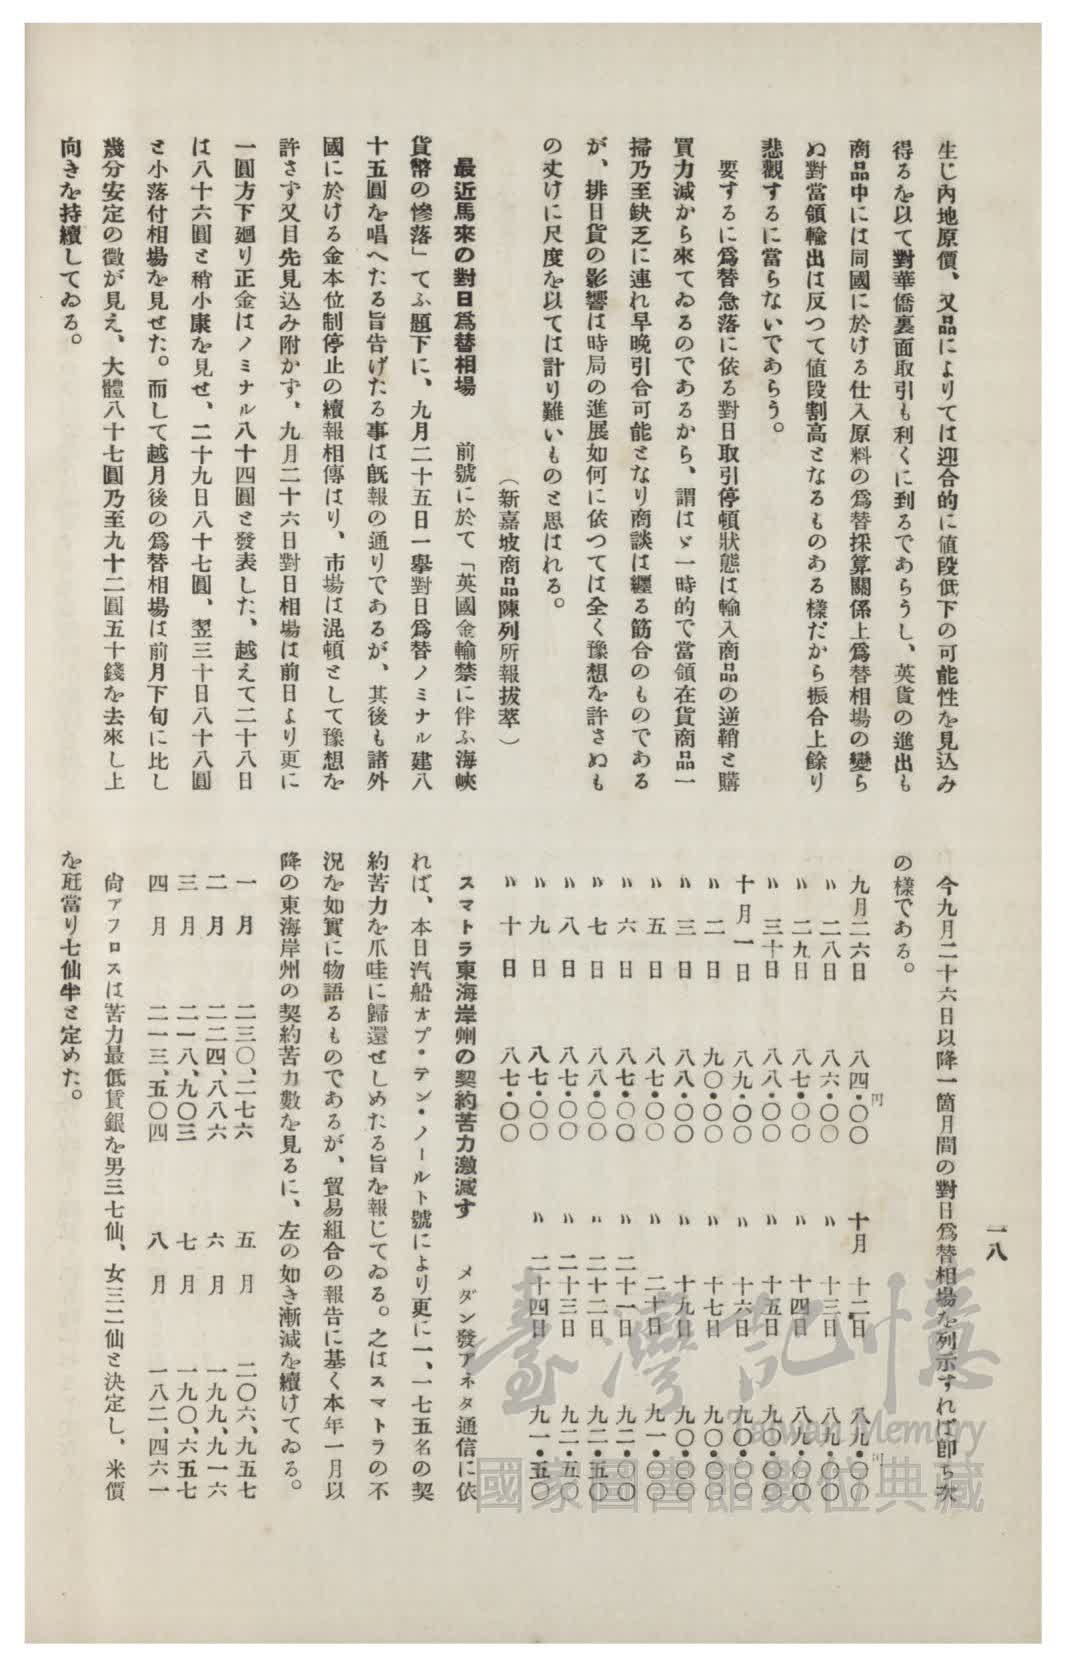 一八
生じ內地原價、又品によりては迎合的に値段低下の可能性を見込み
得るを以て對華僑裏面取引も利くに到るであらうし、英貨の進出も
商品中には同國に於ける仕入原料の爲替採算關係上爲替相場の變ら
ぬ對當領輸出は反つて値段割高となるものある樣だから振合上餘り
悲觀するに當らないであらう。
要するに爲替急落に依る對日取引停頓狀態は輸入商品の逆鞘と購
買力減から來てゐるのであるから、謂はゞ一時的で當領在貨商品一
掃乃至缺乏に連れ早晩引合可能となり商談は纒る筋合のものである
が、排日貨の影響は時局の進展如何に依つては全く豫想を許さぬも
の丈けに尺度を以ては計り難いものと思はれる。
（新嘉坡商品陳列所報拔萃）
最近馬來の對日爲替相場　前號に於て「英國金輸禁に伴ふ海峽
貨幣の慘落」てふ題下に、九月二十五日一擧對日爲替ノミナル建八
十五圓を唱へたる旨告げたる事は既報の通りであるが、其後も諸外
國に於ける金本位制停止の續報相傳はり、市場は混頓として豫想を
許さず又目先見込み附かず、九月二十六日對日相場は前日より更に
一圓方下廻り正金はノミナル八十四圓と發表した、越えて二十八日
は八十六圓と稍小康を見せ、二十九日八十七圓、翌三十日八十八圓
と小落付相場を見せた。而して越月後の爲替相場は前月下旬に比し
幾分安定の徵が見え、大體八十七圓乃至九十二圓五十錢を去來し上
向きを持續してゐる。
今九月二十六日以降一箇月間の對日爲替相場を列示すれば卽ち次
の樣である。
九月二六日　八四・〇〇円　十月十二日　八九・〇〇円
〃二八日　八六・〇〇　〃十三日　八九・〇〇
〃二九日　八七・〇〇　〃十四日　八九・〇〇
〃三十日　八八・〇〇　〃十五日　九〇・〇〇
十月一日　八九・〇〇　〃十六日　九〇・〇〇
〃二日　九〇・〇〇　〃十七日　九〇・〇〇
〃三日　八八・〇〇　〃十九日　九〇・〇〇
〃五日　八七・〇〇　〃二十日　九一・〇〇
〃六日　八七・〇〇　〃二十一日　九二・〇〇
〃七日　八八・〇〇　〃二十二日　九二・五〇
〃八日　八七・〇〇　〃二十三日　九二・五〇
〃九日　八七・〇〇　〃二十四日　九一・五〇
〃十日　八七・〇〇
スマトラ東海岸州の契約苦力激減す　メダン發アネタ通信に依
れば、本日汽船オプ・テン・ノールト號により更に一、一七五名の契
約苦力を爪哇に歸還せしめたる旨を報じてゐる。之はスマトラの不
況を如實に物語るものであるが、貿易組合の報告に基く本年一月以
降の東海岸州の契約苦力數を見るに、左の如き漸減を續けてゐる。
一月　二三〇、二七六　五月　二〇六、九五七
二月　二二四、八八六　六月　一九九、九一六
三月　二一八、九〇三　七月　一九〇、六五七
四月　二一三、五〇四　八月　一八二、四六一
尙アフロスは苦力最低賃銀を男三七仙、女三二仙と決定し、米價
を瓩當り七仙半と定めた。
臺灣記憶
Taiwan Memory
國家圖書館數位典藏